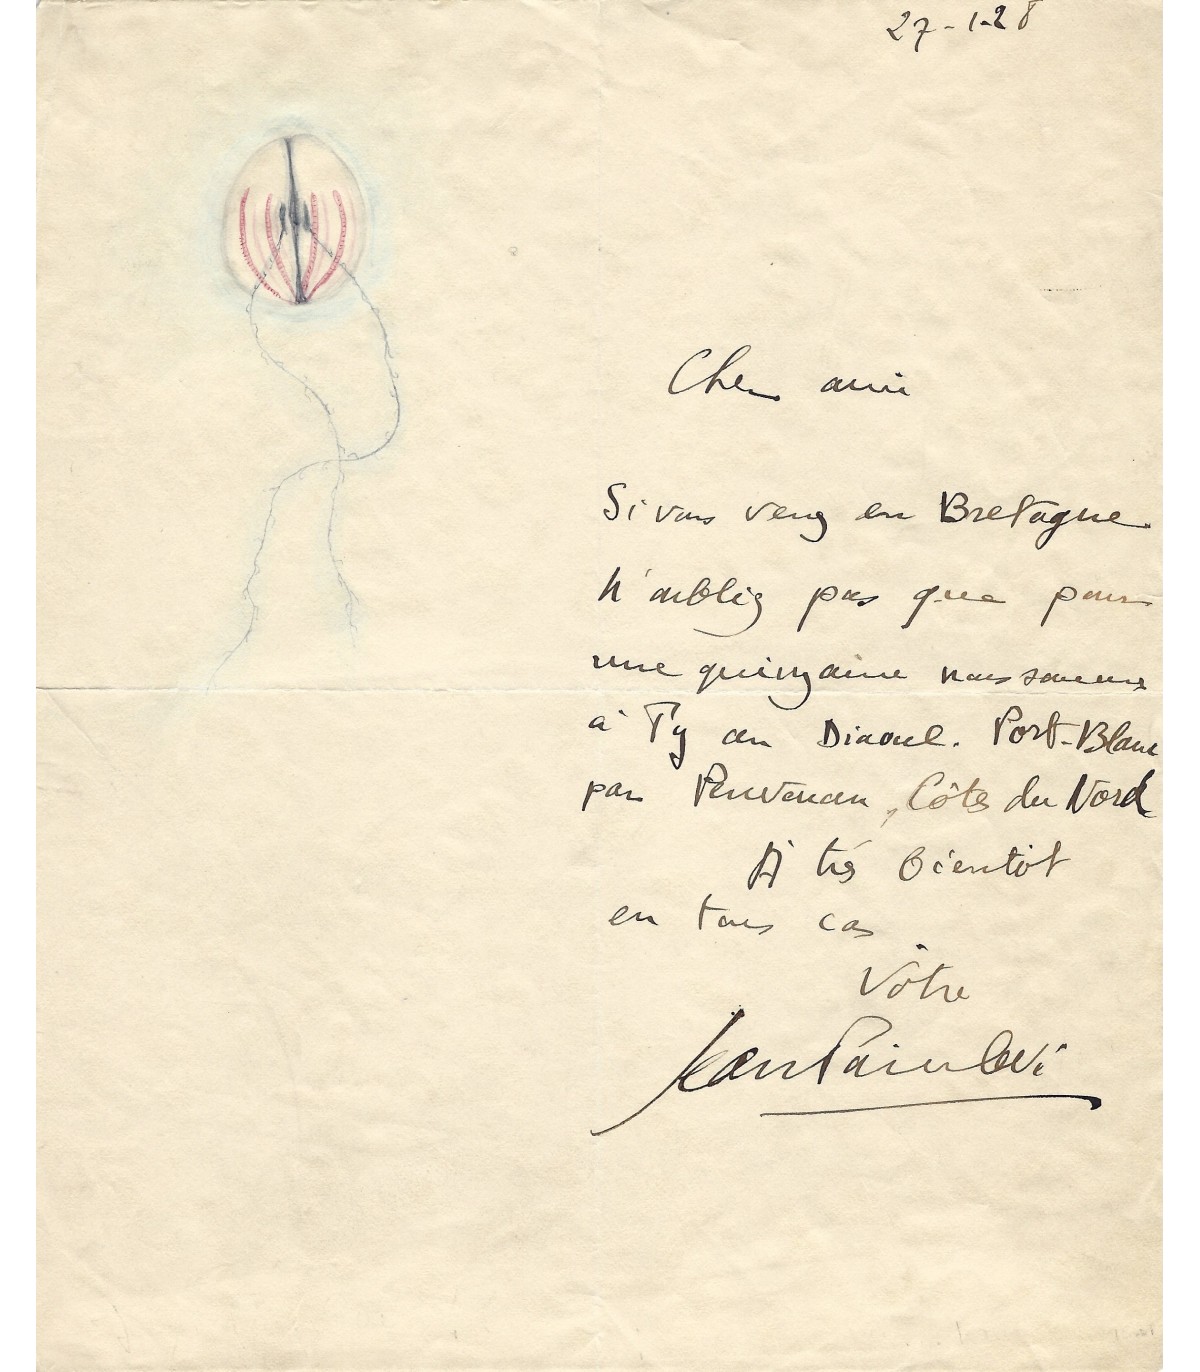 27-1-28
Cher ami
Si vous venez en Bretagne
N'oubliez pas que pour
une quinzaine nous sommes
à Ty an Diaoul. Port-Blanc
par Penvenan, Côtes du Nord
A très bientôt
en tous cas
Vôtre
Jean Painlevé